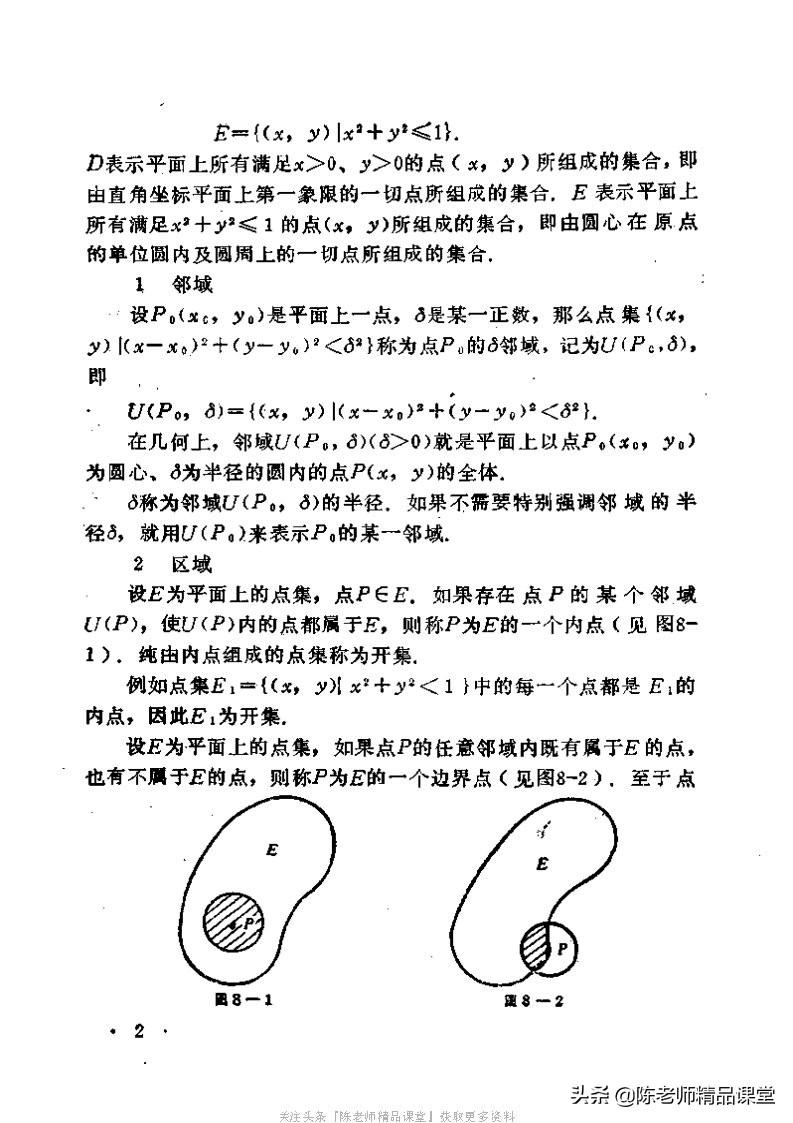 E={(x, y)|x²+y²≤1}.
D表示平面上所有满足x>0、y>0的点(x, y)所组成的集合,即
由直角坐标平面上第一象限的一切点所组成的集合. E 表示平面上
所有满足x²+y²≤1的点(x, y)所组成的集合, 即由圆心在原点
的单位圆内及圆周上的一切点所组成的集合.
1 邻域
设P₀(x₀, y₀)是平面上一点, δ是某一正数, 那么点集{(x,
y)|(x-x₀)²+(y-y₀)²<δ²}称为点P₀的δ邻域, 记为U(P₀,δ),
即
U(P₀, δ)={(x, y)|(x-x₀)²+(y-y₀)²<δ²}.
在几何上, 邻域U(P₀, δ)(δ>0)就是平面上以点P₀(x₀, y₀)
为圆心、δ为半径的圆内的点P(x, y)的全体.
δ称为邻域U(P₀, δ)的半径. 如果不需要特别强调邻域的半
径δ, 就用U(P₀)来表示P₀的某一邻域.
2 区域
设E为平面上的点集, 点P∈E. 如果存在点P的某个邻域
U(P), 使U(P)内的点都属于E, 则称P为E的一个内点(见图8-
1). 纯由内点组成的点集称为开集.
例如点集E₁={(x, y)| x²+y²<1}中的每一个点都是E₁的
内点, 因此E₁为开集.
设E为平面上的点集, 如果点P的任意邻域内既有属于E的点,
也有不属于E的点, 则称P为E的一个边界点(见图8-2). 至于点
E
P
E
P
图8-1
图8-2
· 2 ·
头条 @陈老师精品课堂
关注头条「陈老师精品课堂」获取更多资料